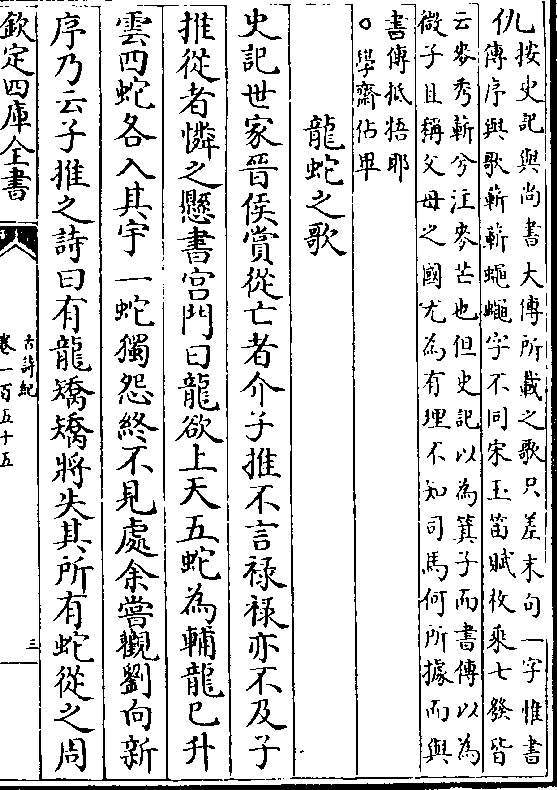 仇按史記與尚書大傳所載之歌只差末句一字惟書
傳序與歌蔪蔪蠅蠅字不同宋玉笛賦枚乘七發皆
云麥秀蔪兮注麥芒也但史記以為箕子而書傳以為
微子且稱父母之國尤為有理不知司馬何所據而與
書傳抵牾耶
○學齋佔畢
龍蛇之歌
史記世家晉侯賞從亡者介子推不言祿祿亦不及子
推從者憐之懸書宮門曰龍欲上天五蛇為輔龍已升
雲四蛇各入其宇一蛇獨怨終不見處余嘗觀劉向新
序乃云子推之詩曰有龍矯矯將失其所有蛇從之周
欽定四庫全書
古詩紀
卷一百五十五
三